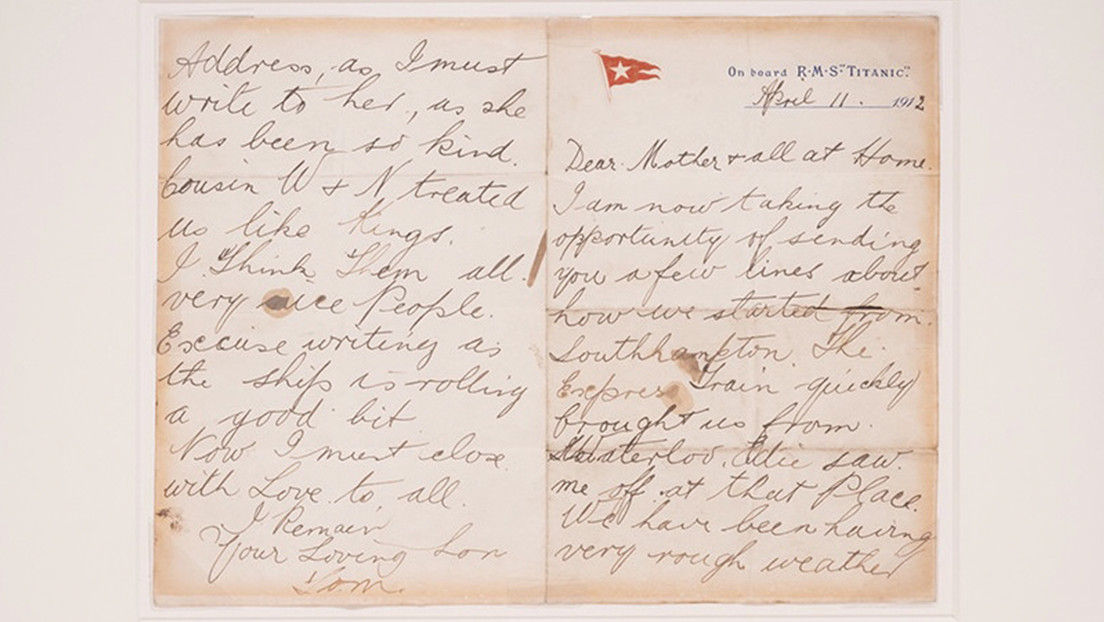 On board R.M.S "TITANIC".
April 11. 1912
Dear Mother & all at Home.
I am now taking the
opportunity of sending
you a few lines about
how we started from.
Southhampton. The
Express Train quickly
brought us from.
Waterloo. Edie saw.
me off at that Place.
We have been having
very rough weather
Address, as I must
write to her, as she
has been so kind.
Cousin W & N treated
us like Kings.
I Think Them all.
very nice People.
Excuse writing as
the ship is rolling
a good bit
Now I must close
with Love to all.
I Remain
Your Loving Son
Tom.